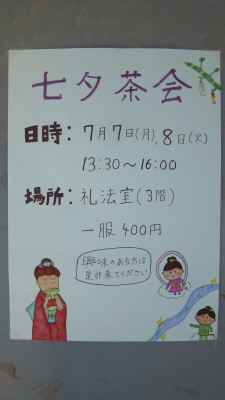 七夕茶会
日時：7月7日(月),8日(火)
13:30～16:00
場所：礼法室(3階)
一服 400円
興味のある方は
是非来てください